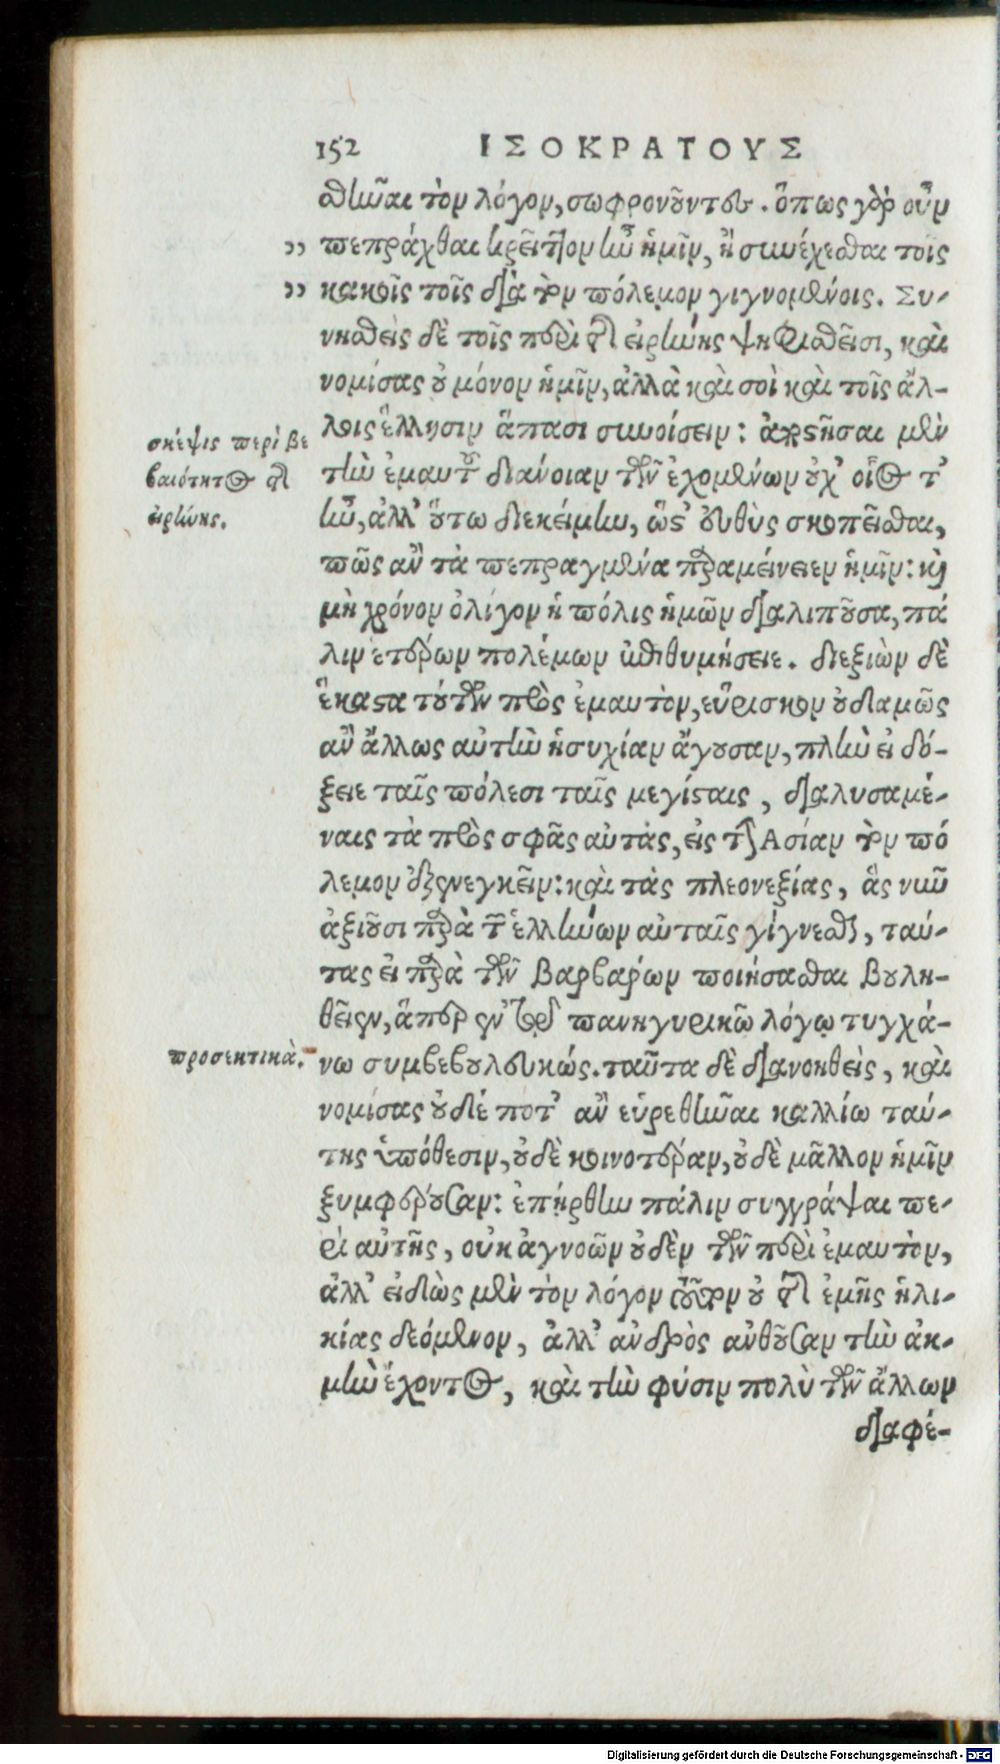 152 ΙΣΟΚΡΑΤΟΥΣ
σθῆναι τὸν λόγον, σωφρονοῦντες. ὅπως γὰρ οὖν
„ πεπράχθαι κρεῖττον ἦν ἡμῖν, ἢ συνέχεσθαι τοῖς
„ κακοῖς τοῖς διὰ τὸν πόλεμον γιγνομένοις. Συ-
νησθεὶς δὲ τοῖς περὶ τῆς εἰρήνης ψηφισθεῖσι, καὶ
νομίσας οὐ μόνον ἡμῖν, ἀλλὰ καὶ σοὶ καὶ τοῖς ἄλ-
λοις ἕλλησιν ἅπασι συνοίσειν: ἀποστῆσαι μὲν
σκέψις περὶ βε
βαιότητος τῆς
εἰρήνης.
τὴν ἐμαυτοῦ διάνοιαν τῶν ἐχομένων οὐχ’ οἷός τ’
ἦν, ἀλλ’ οὕτω διεκείμην, ὥστ’ εὐθὺς σκοπεῖσθαι,
πῶς ἂν τὰ πεπραγμένα παραμείνειεν ἡμῖν: καὶ
μὴ χρόνον ὀλίγον ἡ πόλις ἡμῶν διαλιποῦσα, πά
λιν ἑτέρων πολέμων ἐπιθυμήσειε. διεξιὼν δὲ
ἕκαστα τούτων πρὸς ἐμαυτὸν, εὕρισκον οὐδαμῶς
ἂν ἄλλως αὐτὴν ἡσυχίαν ἄγουσαν, πλὴν εἰ δό-
ξειε ταῖς πόλεσι ταῖς μεγίσταις, διαλυσαμέ-
ναις τὰ πρὸς σφᾶς αὐτὰς, εἰς τὴν Ἀσίαν τὸν πό
λεμον ἐξενεγκεῖν: καὶ τὰς πλεονεξίας, ἃς νῦν
ἀξιοῦσι παρὰ τῶν ἑλλήνων αὐταῖς γίγνεσθαι, ταύ-
τας εἰ παρὰ τῶν βαρβάρων ποιήσασθαι βουλη-
θεῖεν, ἅπερ ἐν τῷ πανηγυρικῶ λόγῳ τυγχά-
προσεκτικὰ.
νω συμβεβουλευκώς. ταῦτα δὲ διανοηθεὶς, καὶ
νομίσας οὐδέ ποτ’ ἂν εὑρεθῆναι καλλίω ταύ-
της ὑπόθεσιν, οὐδὲ κοινοτέραν, οὐδὲ μᾶλλον ἡμῖν
ξυμφέρουσαν: ἐπήρθην πάλιν συγγράψαι πε-
ρὶ αὐτῆς, οὐκ ἀγνοῶν οὐδὲν τῶν περὶ ἐμαυτὸν,
ἀλλ’ εἰδὼς μὲν τὸν λόγον τοῦτον οὐ τῆς ἐμῆς ἡλι-
κίας δεόμενον, ἀλλ’ ἀνδρὸς ἀνθοῦσαν τὴν ἀκ-
μὴν ἔχοντος, καὶ τὴν φύσιν πολὺ τῶν ἄλλων
διαφέ-
Digitalisierung gefördert durch die Deutsche Forschungsgemeinschaft - DFG